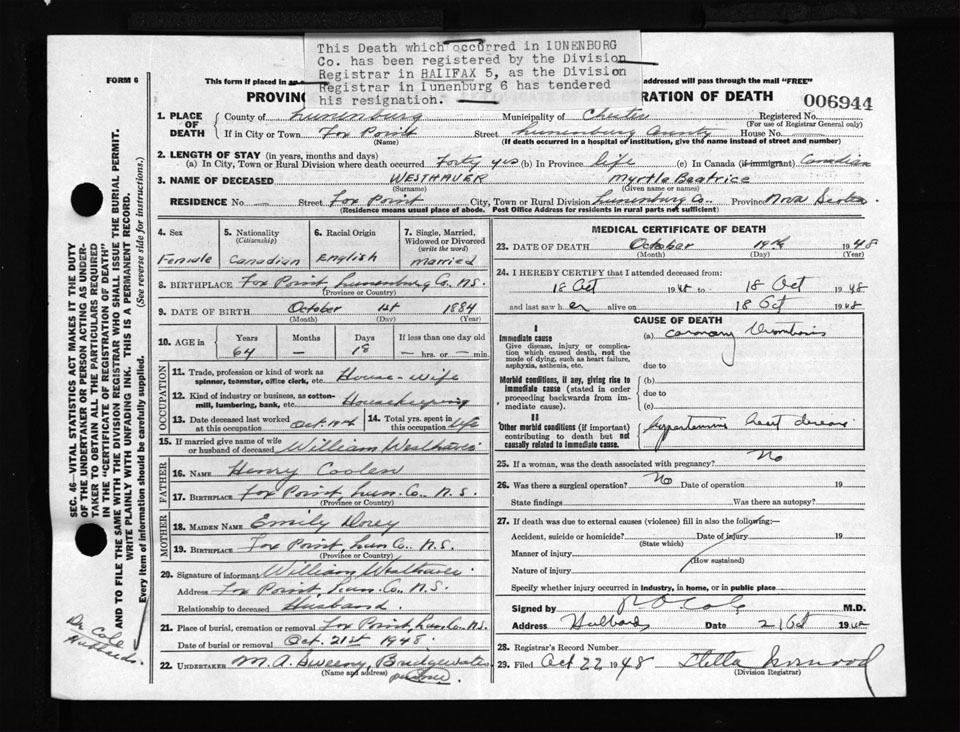 This Death which occurred in IUNENBURG
Co. has been registered by the Division
Registrar in HALIFAX 5, as the Division
Registrar in Iunenburg 6 has tendered
his resignation.
FORM 6
This form if placed in an
addressed will pass through the mail "FREE"
PROVINC
RATION OF DEATH
006944
1. PLACE OF DEATH
County of Lunenburg Municipality of Chester Registered No.
(For use of Registrar General only)
If in City or Town Fox Point Street Lunenburg County House No.
(Name) (If death occurred in a hospital or institution, give the name instead of street and number)
2. LENGTH OF STAY (in years, months and days)
(a) In City, Town or Rural Division where death occurred Forty yrs (b) In Province life (c) In Canada (if immigrant) Canadian
3. NAME OF DECEASED WESTHAVER Myrtle Beatrice
(Surname) (Given name or names)
RESIDENCE No. Street Fox Point City, Town or Rural Division Lunenburg Co. Province Nova Scotia
(Residence means usual place of abode. Post Office Address for residents in rural parts not sufficient)
4. Sex
Female
5. Nationality
(Citizenship)
Canadian
6. Racial Origin
English
7. Single, Married,
Widowed or Divorced
(write the word)
married
8. BIRTHPLACE Fox Point, Lunenburg Co. N.S.
(Province or Country)
9. DATE OF BIRTH October 1st 1884
(Month) (Day) (Year)
10. AGE in
Years Months Days If less than one day
64 — 18 — hrs. or — min.
OCCUPATION
11. Trade, profession or kind of work as
spinner, teamster, office clerk, etc. House-Wife
12. Kind of industry or business, as cotton-
mill, lumbering, bank, etc. Housekeeping
13. Date deceased last worked
at this occupation Oct. 19th
14. Total yrs. spent in
this occupation life
15. If married give name of wife
or husband of deceased William Westhaver
FATHER
16. NAME Henry Coolen
17. BIRTHPLACE Fox Point, Lun. Co. N.S.
(Province or Country)
MOTHER
18. MAIDEN NAME Emily Dorey
19. BIRTHPLACE Fox Point, Lun Co. N.S.
(Province or Country)
20. Signature of informant William Westhaver
Address Fox Point, Lun. Co. N.S.
Relationship to deceased Husband.
21. Place of burial, cremation or removal Fox Point, Lun. Co. N.S.
Date of burial or removal Oct. 21st 1948
22. UNDERTAKER M. A. Sweeny, Bridgewater
(Name and address)
MEDICAL CERTIFICATE OF DEATH
23. DATE OF DEATH October 19th 1948
(Month) (Day) (Year)
24. I HEREBY CERTIFY that I attended deceased from:
18 Oct 1948 to 18 Oct 1948
and last saw her alive on 18 Oct 1948
CAUSE OF DEATH
I
Immediate cause
Give disease, injury or complica-
tion which caused death, not the
mode of dying, such as heart failure,
asphyxia, asthenia, etc.
(a) coronary thrombosis
due to
Morbid conditions, if any, giving rise to
immediate cause (stated in order
proceeding backwards from im-
mediate cause).
(b)
due to
(c)
II
Other morbid conditions (if important)
contributing to death but not
causally related to immediate cause.
hypertensive heart disease
25. If a woman, was the death associated with pregnancy? No
26. Was there a surgical operation? No Date of operation 19
State findings Was there an autopsy?
27. If death was due to external causes (violence) fill in also the following:—
Accident, suicide or homicide? Date of injury 19
(State which)
Manner of injury
(How sustained)
Nature of injury
Specify whether injury occurred in industry, in home, or in public place
Signed by Cole M.D.
Address Hubbards Date 21 Oct 1948
28. Registrar's Record Number
29. Filed Oct 22 1948 Stella
(Division Registrar)
SEC. 46—VITAL STATISTICS ACT MAKES IT THE DUTY
OF THE UNDERTAKER OR PERSON ACTING AS UNDER-
TAKER TO OBTAIN ALL THE PARTICULARS REQUIRED
IN THE "CERTIFICATE OF REGISTRATION OF DEATH"
AND TO FILE THE SAME WITH THE DIVISION REGISTRAR WHO SHALL ISSUE THE BURIAL PERMIT.
WRITE PLAINLY WITH UNFADING INK. THIS IS A PERMANENT RECORD.
Every item of information should be carefully supplied. (See reverse side for instructions.)
Dr Cole
Hubbards